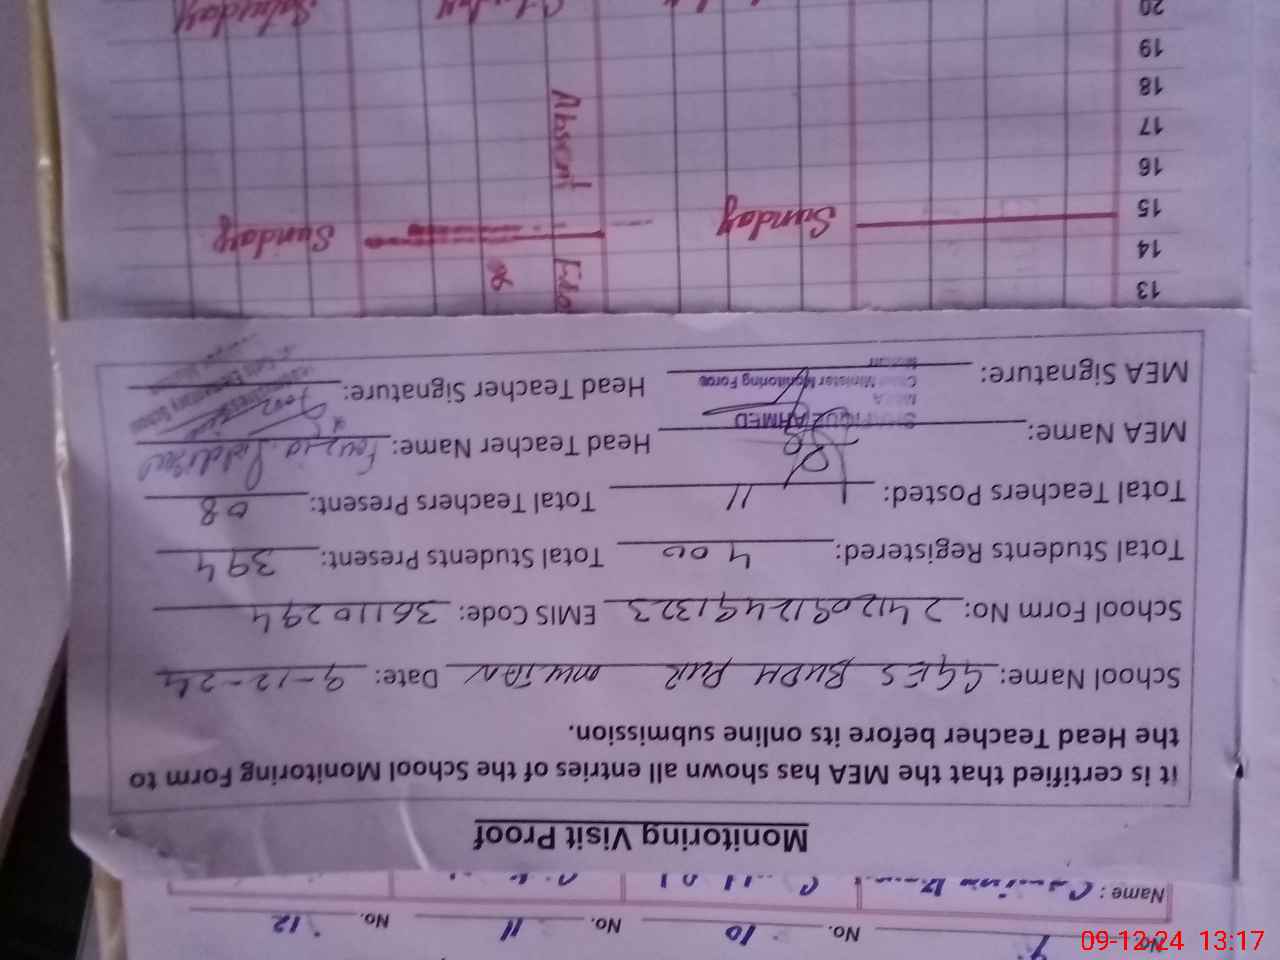 No. 10 No. 11 No. 12
Name :
Monitoring Visit Proof
it is certified that the MEA has shown all entries of the School Monitoring Form to
the Head Teacher before its online submission.
School Name: GGES BUDH PUR MULTAN Date: 9-12-24
School Form No: 24120912491323 EMIS Code: 36110294
Total Students Registered: 400 Total Students Present: 394
Total Teachers Posted: 11 Total Teachers Present: 08
MEA Name: AHMED Head Teacher Name: Fouzia
MEA Signature: Head Teacher Signature:
Chief Minister Monitoring Force
13
14
15 Sunday Sunday
16
17 Absent
18
19
20 Saturday
09-12-24 13:17